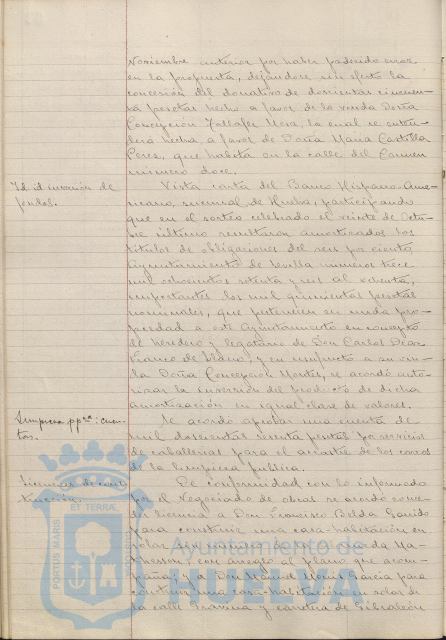 Noviembre anterior por haber padecido error
en la propuesta, dejándose sin efecto la
concesión del donativo de doscientas cincuen-
ta pesetas hecho a favor de la viuda Doña
Concepción Mora, la cual se enten-
derá hecha a favor de Doña María Castilla
Peres, que habita en la calle del Carmen
número doce.
Id. id inversión de
fondos.
Vista carta del Banco Hispano-Ame-
ricano, sucursal de Huelva, participando
que en el sorteo celebrado el veinte de Octu-
bre último resultaron amortizados los
títulos de obligaciones del seis por ciento
Ayuntamiento de Sevilla números trece
mil ochocientos setenta y seis al ochenta,
importantes dos mil quinientas pesetas
nominales, que pertenecen en nuda pro-
piedad a este Ayuntamiento en concepto
de heredero y legatario de Don Carlos Díaz
Franco de Llano, y en usufructo a su viu-
da Doña Concepción Montes, se acordó auto-
rizar la inversión del producto de dicha
amortización en igual clase de valores.
Limpieza ppca: cuen-
tas.
Se acordó aprobar una cuenta de
mil doscientas sesenta pesetas por servicios
de caballerías para el arrastre de los carros
de la limpieza pública.
Licencias de cons-
trucción.
De conformidad con lo informado
por el Negociado de obras se acordó conce-
der licencia a Don Francisco Belda Garrido
para construir una casa-habitación en
solar sin número de la Ma-
thesson, con arreglo al plano que acom-
paña; y a Don Manuel García para
construir una casa-habitación en solar de
la calle Gravina y carretera de Gibraleón
PORTUS MARIS ET TERRAE
Ayuntamiento de
HUELVA